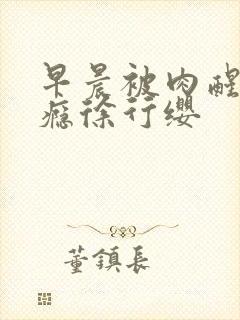 早晨被肉醒
瘾徐行缨
董镇长